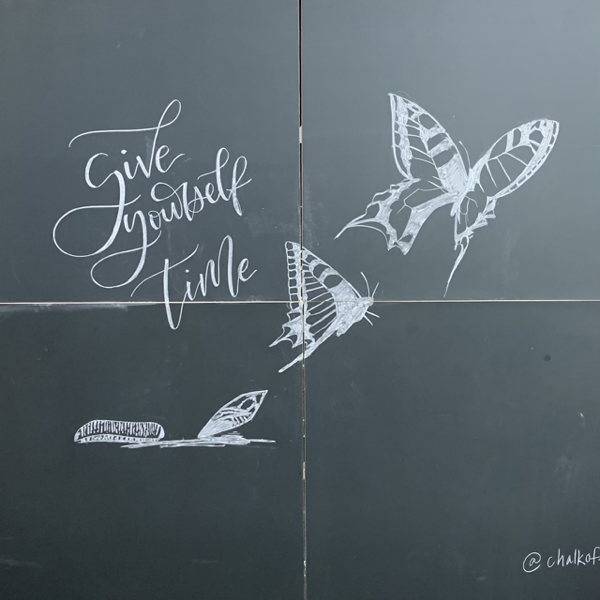 Give
yourself
time
@chalkof